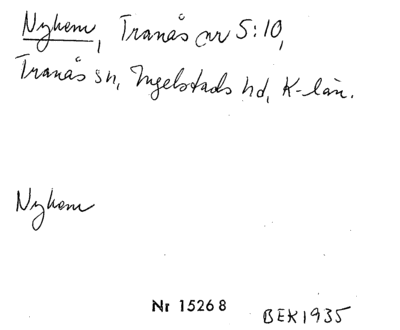 Nyhem, Tranås nr 5:10,
Tranås sn, Ingelstads hd, K-län.
Nyhem
Nr 15268
BEK1935